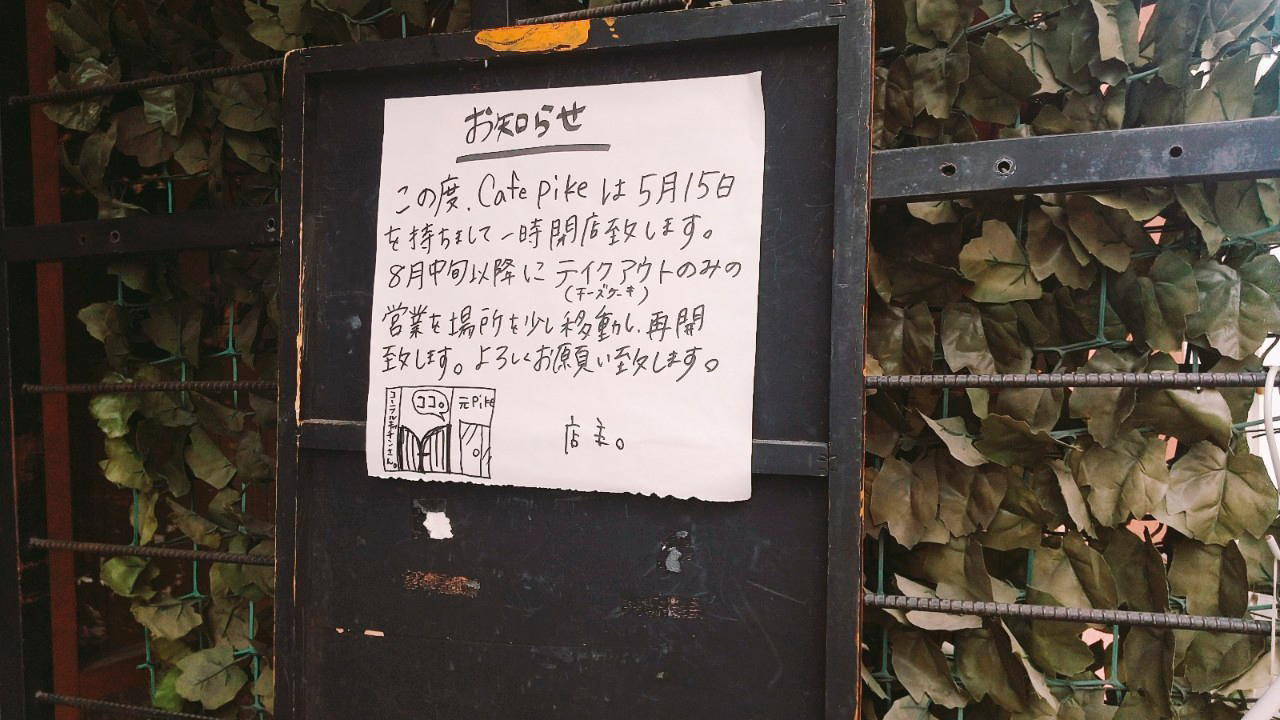 お知らせ
この度、Cafe pike は 5月15日
を持ちまして一時閉店致します。
8月中旬以降に テイクアウトのみの
(チーズケーキ)
営業を場所を少し移動し、再開
致します。よろしくお願い致します。
ココ。
元Pike
店主。